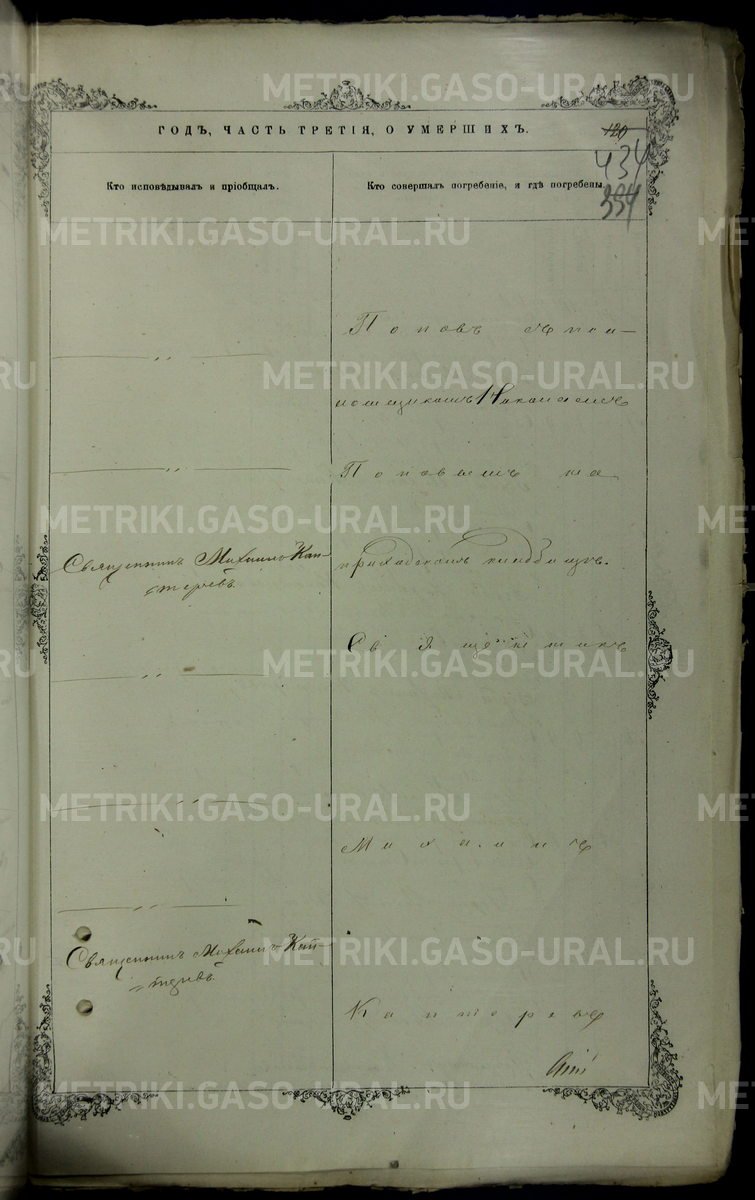 METRIKI.GASO-URAL.RU
ГОДЪ, ЧАСТЬ ТРЕТІЯ, О УМЕРШИХЪ.
129
434
334
Кто исповѣдывалъ и пріобщалъ.
Кто совершалъ погребеніе, и гдѣ погребены.
— „ —
— „ —
Священникъ Михаилъ Кап-
теревъ.
— „ —
— „ —
Священникъ Михаилъ Кап-
теревъ.
Поповъ съ пса-
ломщикомъ Николаемъ
Поповымъ на
приходскомъ кладбищѣ.
Священникъ
Михаилъ
Каптеревъ
METRIKI.GASO-URAL.RU
METRIKI.GASO-URAL.RU
METRIKI.GASO-URAL.RU
METRIKI.GASO-URAL.RU
METRIKI.GASO-URAL.RU
METRIKI.GASO-URAL.RU
METRIKI.GASO-URAL.RU